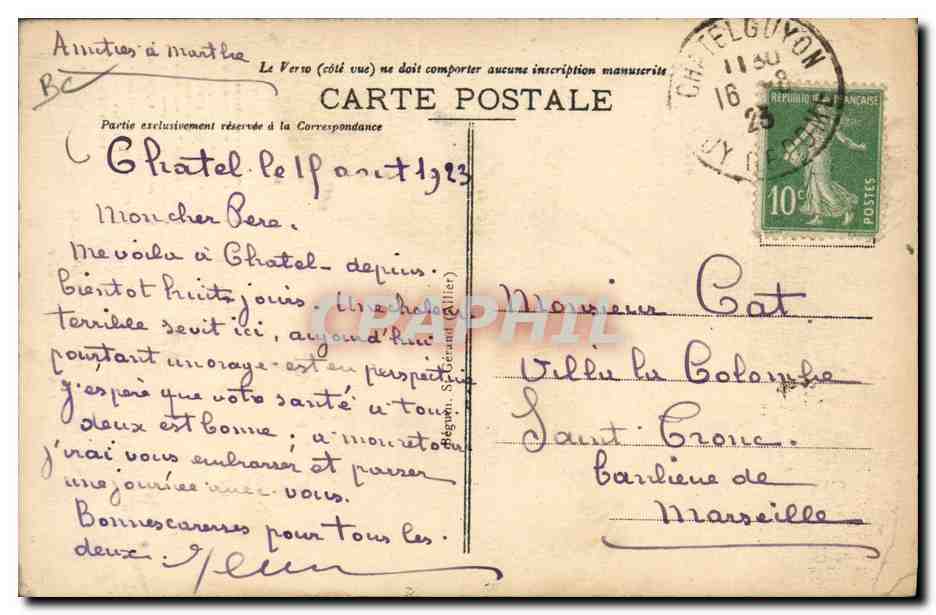 Amities à Marthe
BC
Le Verso (côté vue) ne doit comporter aucune inscription manuscrite
CARTE POSTALE
Partie exclusivement réservée à la Correspondance
CHATELGUYON
11 30
16 - 8
23
PUY DE DOME
REPUBLIQUE FRANÇAISE
10c
POSTES
Chatel. le 15 aout 1923
Mon cher Pere.
Me voila à Chatel - depuis.
bientot huits jours. Une chaleur
terrible sevit ici, aujourd'hui
pourtant un orage est en perspective
J'espère que votre santé a tous
deux est bonne; a mon retour
j'irai vous embrasser et passer
une journée avec vous.
Bonnes caresses pour tous les
deux.
Béguin. St-Gérand (Allier)
Monsieur Cat.
Villa la Colombe
Saint Tronc.
banlieue de
Marseille
CPAPHIL